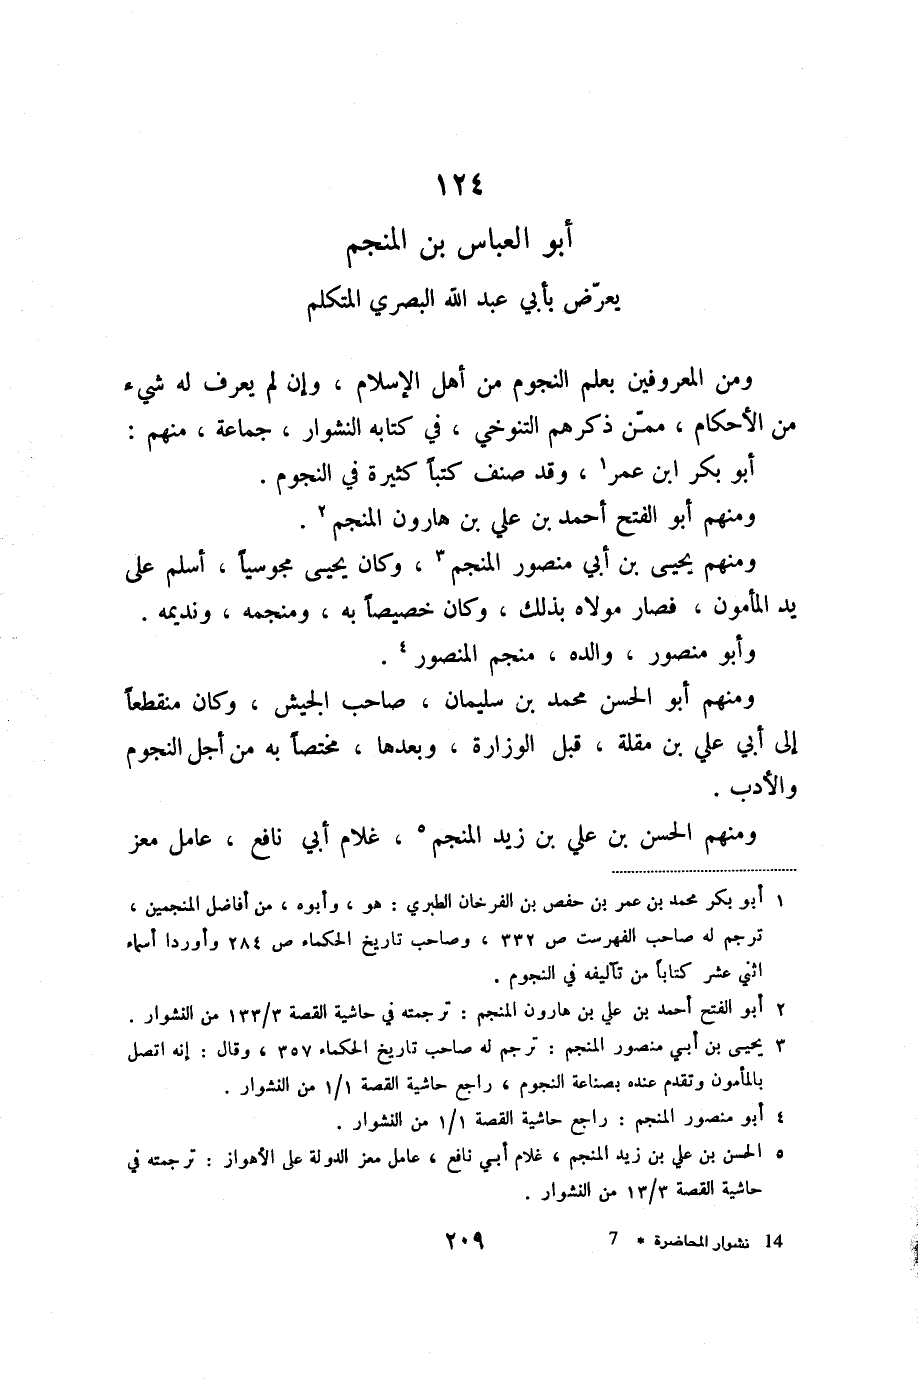 ١٢٤
أبو العباس بن المنجم
يعرّض بأبي عبد الله البصري المتكلم
ومن المعروفين بعلم النجوم من أهل الإسلام ، وإن لم يعرف له شيء
من الأحكام ، ممّن ذكرهم التنوخي ، في كتابه النشوار ، جماعة ، منهم :
أبو بكر ابن عمر١ ، وقد صنف كتباً كثيرة في النجوم .
ومنهم أبو الفتح أحمد بن علي بن هارون المنجم٢ .
ومنهم يحيـى بن أبي منصور المنجم٣ ، وكان يحيـى مجوسياً ، أسلم على
يد المأمون ، فصار مولاه بذلك ، وكان خصيصاً به ، ومنجمه ، ونديمه .
وأبو منصور ، والده ، منجم المنصور٤ .
ومنهم أبو الحسن محمد بن سليمان ، صاحب الجيش ، وكان منقطعاً
إلى أبي علي بن مقلة ، قبل الوزارة ، وبعدها ، مختصاً به من أجل النجوم
والأدب .
ومنهم الحسن بن علي بن زيد المنجم٥ ، غلام أبي نافع ، عامل معز
١ أبو بكر محمد بن عمر بن حفص بن الفرخان الطبري : هو ، وأبوه ، من أفاضل المنجمين ،
ترجم له صاحب الفهرست ص ٣٣٢ ، وصاحب تاريخ الحكماء ص ٢٨٤ وأوردا أسماء
اثني عشر كتاباً من تآليفه في النجوم .
٢ أبو الفتح أحمد بن علي بن هارون المنجم : ترجمته في حاشية القصة ١٣٣/٣ من النشوار .
٣ يحيـى بن أبـي منصور المنجم : ترجم له صاحب تاريخ الحكماء ٣٥٧ ، وقال : إنه اتصل
بالمأمون وتقدم عنده بصناعة النجوم ، راجع حاشية القصة ١/١ من النشوار .
٤ أبو منصور المنجم : راجع حاشية القصة ١/١ من النشوار .
٥ الحسن بن علي بن زيد المنجم ، غلام أبـي نافع ، عامل معز الدولة على الأهواز : ترجمته في
حاشية القصة ١٣/٣ من النشوار .
14 نشوار المحاضرة * 7
٢٠٩